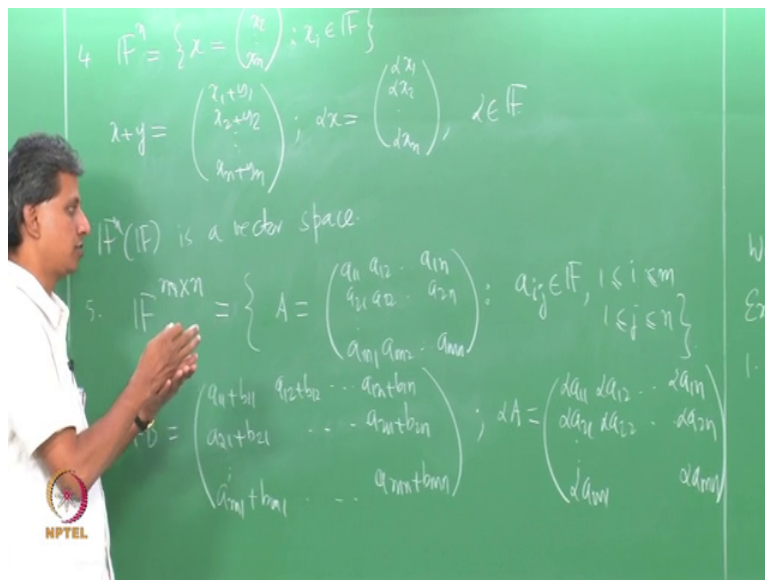 4 𝔽ⁿ = { x = (x₂ ⋮ xₙ) ; xᵢ ∈ 𝔽 }
x+y = (x₁+y₁ x₂+y₂ ⋮ xₙ+yₙ) ; αx = (αx₁ αx₂ ⋮ αxₙ), α ∈ 𝔽
𝔽ⁿ(𝔽) is a vector space.
5. 𝔽ᵐˣⁿ = { A = (a₁₁ a₁₂ .. a₁ₙ
a₂₁ a₂₂ .. a₂ₙ
⋮
aₘ₁ aₘ₂ .. aₘₙ) : aᵢⱼ ∈ 𝔽, 1 ≤ i ≤ m
1 ≤ j ≤ n }
= (a₁₁+b₁₁ a₁₂+b₁₂ ... a₁ₙ+b₁ₙ
a₂₁+b₂₁ ... a₂ₙ+b₂ₙ
⋮
aₘ₁+bₘ₁ ... aₘₙ+bₘₙ) ; αA = (αa₁₁ αa₁₂ .. αa₁ₙ
αa₂₁ αa₂₂ .. αa₂ₙ
⋮
αaₘ₁ αaₘₙ)
1.
NPTEL